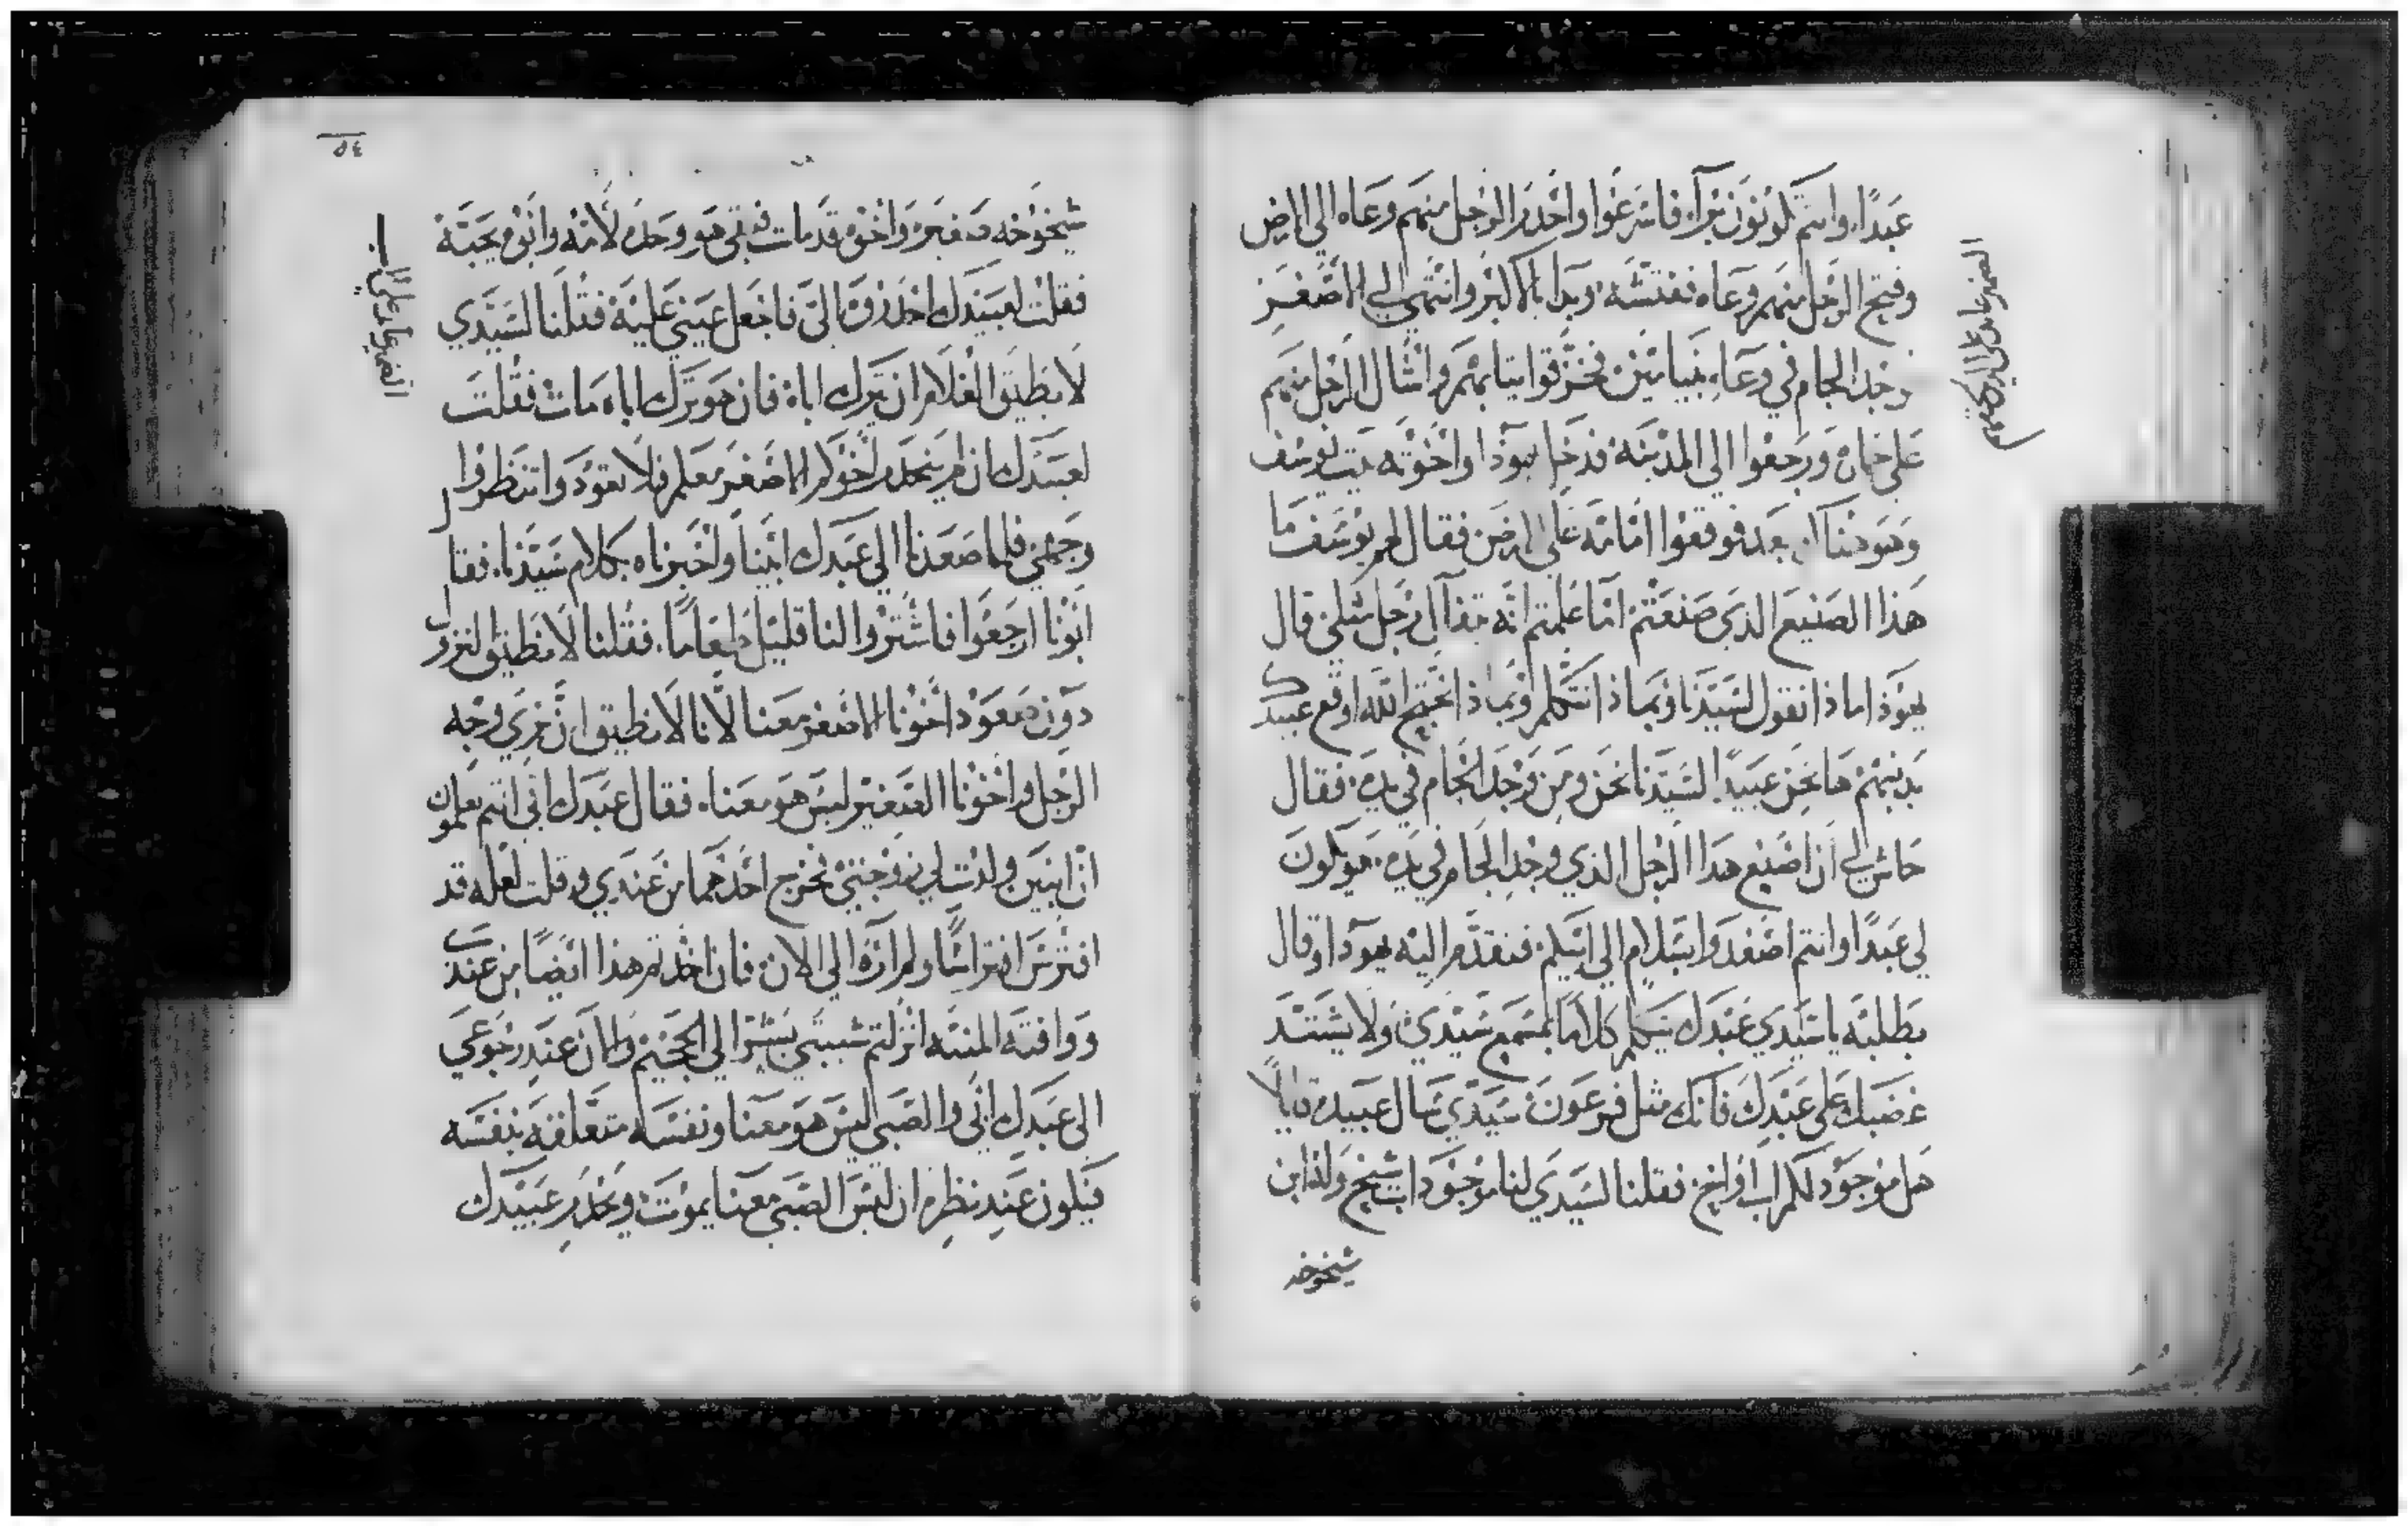 عبدًا وانتم تكونون برآء فاسرعوا واحدروا الرجل منهم وعاه الي الارض
وفتح الرجل منهم وعاه ففتشه وبدا بالاكبر وانتهي الي الاصغر
وجد الجام في وعاء بنيامين فخرقوا ثيابهم واشال الرجل منهم
علي حماره ورجعوا الي المدينه فدخل يهوذا واخوته بيت يوسف
وهو هناك بعد فوقعوا امامه علي الارض فقال لهم يوسف ما
هذا الصنيع الذي صنعتم اما علمتم انه يتفال رجل مثلي قال
يهوذا ماذا نقول لسيدنا وبماذا نتكلم وبماذا نحتج الله اوقع عبيدك
بذنبهم ها نحن عبيدًا لسيدنا نحن ومن وجد الجام في يده فقال
حاش لي ان اصنع هذا الرجل الذي وجد الجام في يده هو يكون
لي عبدًا وانتم اصعدوا بسلام الي ابيكم فتقدم اليه يهوذا وقال
بطلبه يا سيدي عبدك يتكلم كلاما بمسمع سيدي ولا يشتد
غضبك علي عبدك فانك مثل فرعون سيدي سال عبيده قايلاً
هل موجود لكم اب او اخ فقلنا لسيدي لنا موجود اب شيخ ولد ابن
شيخوخه
الضمير عايد علي الرجل منهم
٣٥
شيخوخه صغير واخوه قد مات فبقي هو وحده لامه وابوه يحبه
فقلت لعبيدك احدروه الي فاجعل عيني عليه فقلنا لسيدي
لا يطيق الغلام ان يترك اباه فان هو ترك اباه مات فقلت
لعبيدك ان لم ينحدر اخوكم الاصغر معكم فلا تعودوا تنظروا
وجهي فلما صعدنا الي عبدك ابينا واخبرناه بكلام سيدنا فقال
ابونا ارجعوا فاشتروا لنا قليل طعاما فقلنا لا نطيق لنزول
دون صعود اخونا الاصغر معنا لانا لا نطيق ان نري وجه
الرجل واخونا الصغير ليس هو معنا فقال عبدك ابي انتم تعلمون
ان ابنين ولدت لي زوجتي فخرج احدهما من عندي وقلت لعله قد
افترس افتراسًا ولم اره الي الان فان اخذتم هذا ايضًا من عندي
ووافته المنيه انزلتم شيبتي بشرًا الي الجحيم والان عند رجوعي
الي عبدك ابي والصبي ليس هو معنا ونفسه متعلقه بنفسه
فيكون عند نظره ان ليس الصبي معنا يموت ويحدر عبيدك